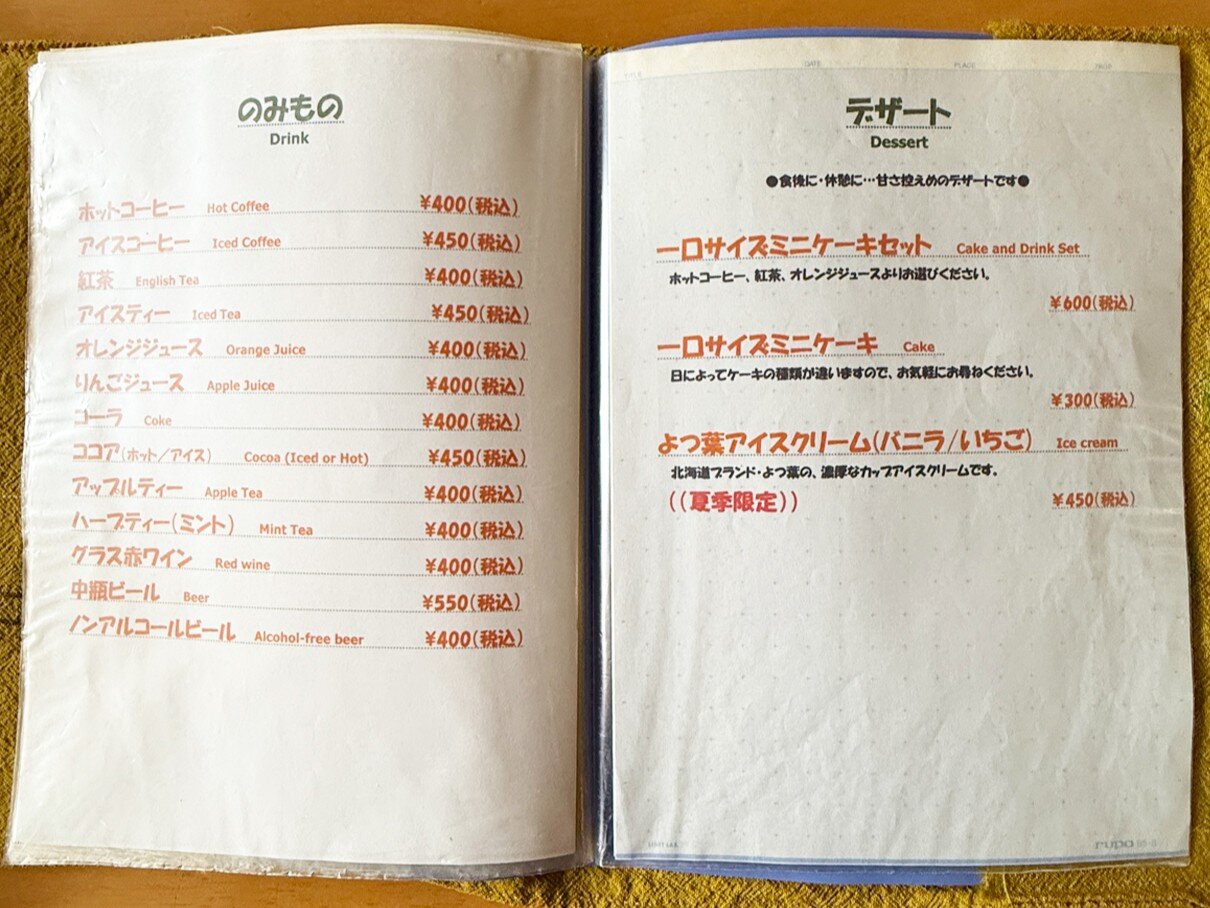 のみもの
Drink
ホットコーヒー Hot Coffee ¥400(税込)
アイスコーヒー Iced Coffee ¥450(税込)
紅茶 English Tea ¥400(税込)
アイスティー Iced Tea ¥450(税込)
オレンジジュース Orange Juice ¥400(税込)
りんごジュース Apple Juice ¥400(税込)
コーラ Coke ¥400(税込)
ココア(ホット/アイス) Cocoa (Iced or Hot) ¥450(税込)
アップルティー Apple Tea ¥400(税込)
ハーブティー(ミント) Mint Tea ¥400(税込)
グラス赤ワイン Red wine ¥400(税込)
中瓶ビール Beer ¥550(税込)
ノンアルコールビール Alcohol-free beer ¥400(税込)
TITLE DATE PLACE
デザート
Dessert
●食後に・休憩に…甘さ控えめのデザートです●
一口サイズミニケーキセット Cake and Drink Set
ホットコーヒー、紅茶、オレンジジュースよりお選びください。
¥600(税込)
一口サイズミニケーキ Cake
日によってケーキの種類が違いますので、お気軽にお尋ねください。
¥300(税込)
よつ葉アイスクリーム(バニラ/いちご) Ice cream
北海道ブランド・よつ葉の、濃厚なカップアイスクリームです。
((夏季限定)) ¥450(税込)